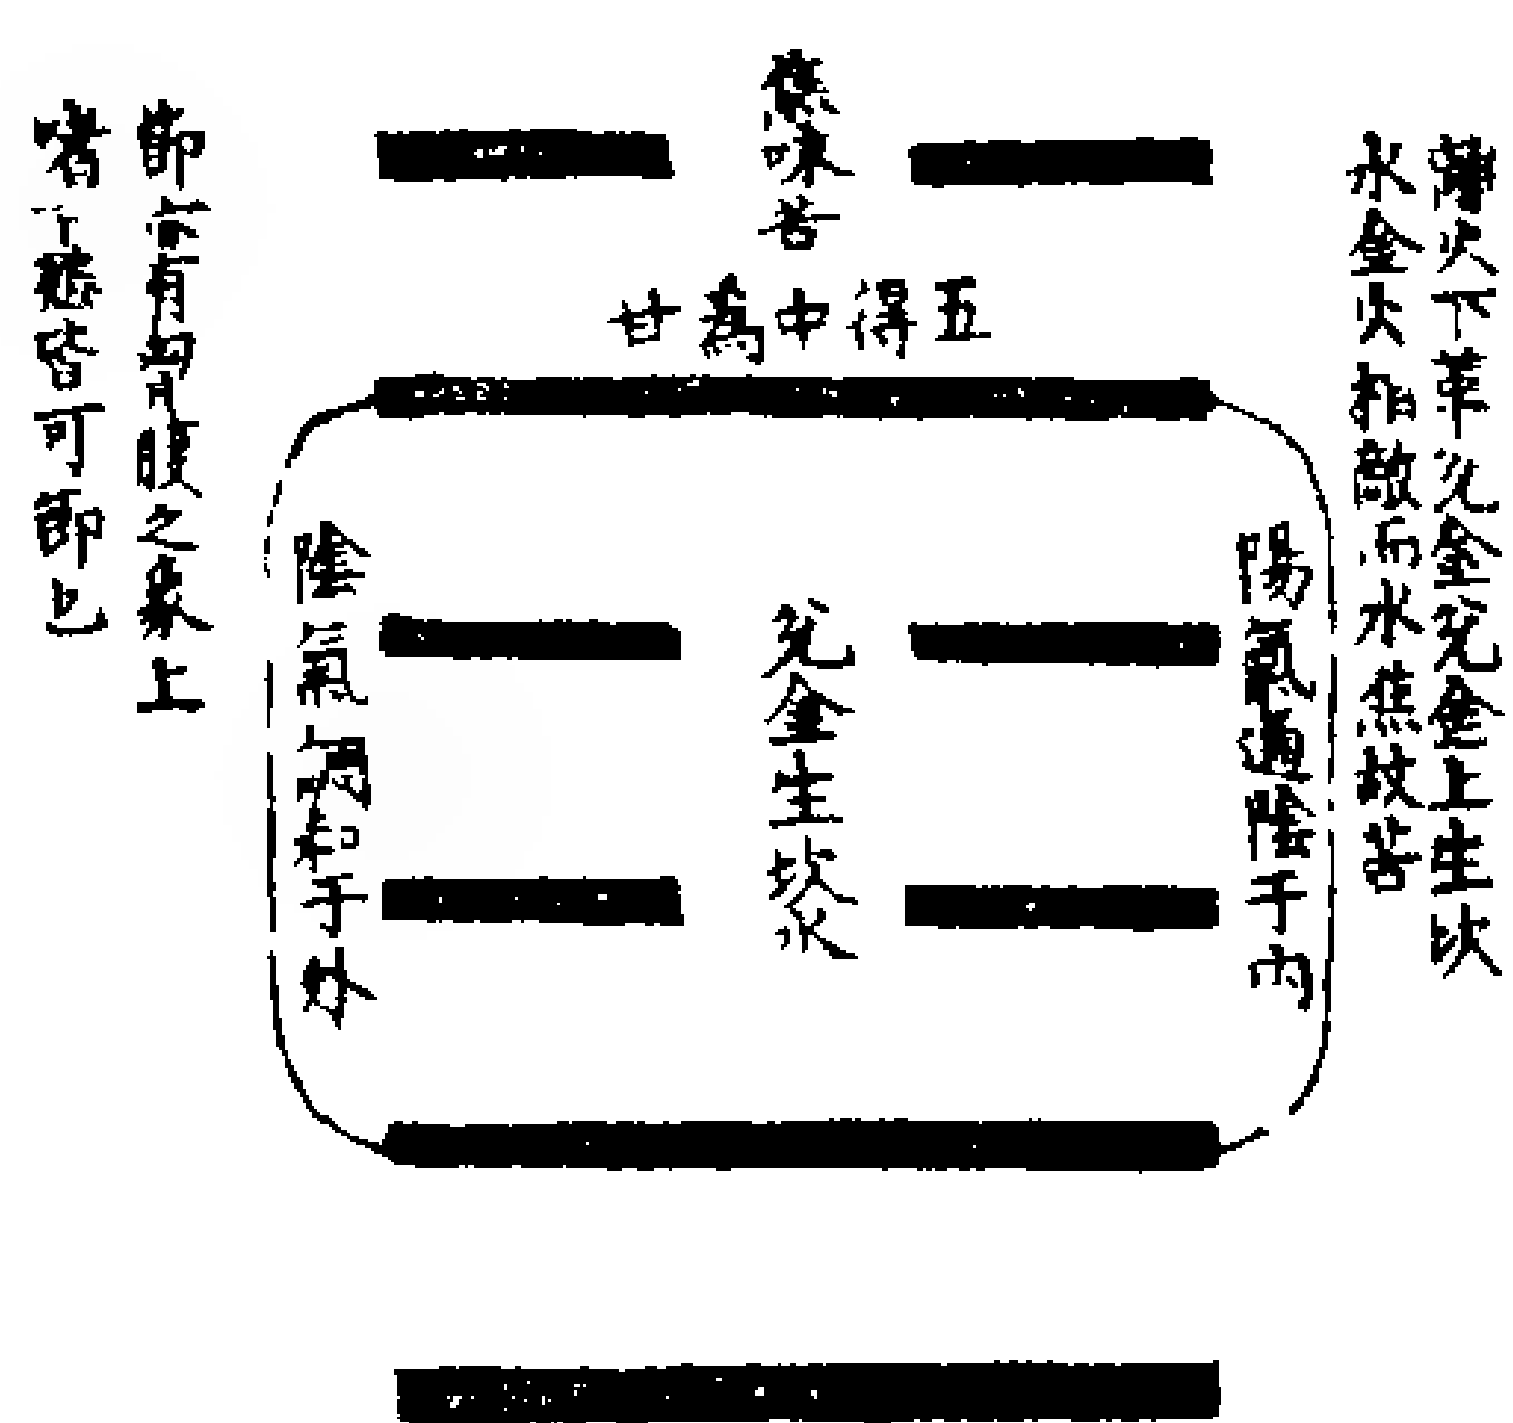 離火下革兌金兌金上生坎
水金火相敵而水焦故苦
焦味苦
五得中為甘
陽氣遁陰于內
兌金生坎水
陰氣調和于外
節 有 腹之象上
嗜 慾皆可節也